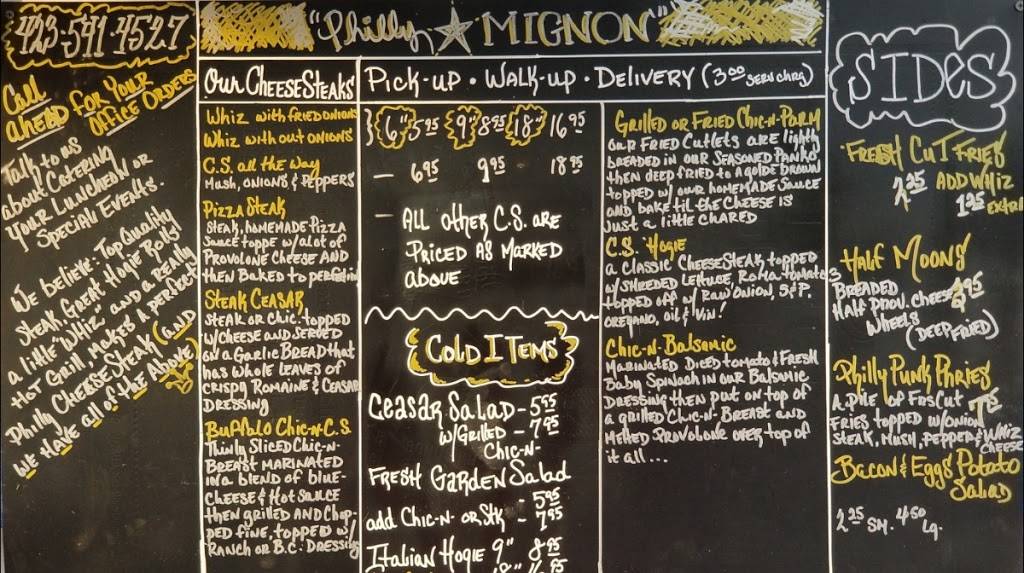 423-541-4527
Call
ahead for your
office orders
Talk to us
about Catering
your Luncheon or
Special Events.
We believe: Top Quality
Steak, Great Hogie Rolls!
a little "Whiz" and a really
Hot Grill makes a perfect!
Philly Cheese Steak (and
we have all of the above)
"Philly MIGNON"
Our Cheese Steaks
Whiz with fried onions
Whiz with out onions
C.S. all the way
Mush, onions & Peppers
Pizza Steak
Steak, homemade Pizza
Sauce toppe w/alot of
Provolone Cheese and
then Baked to perfection
Steak Ceasar
Steak or Chic. topped
w/cheese and served
on a Garlic Bread that
has whole leaves of
crispy Romaine & Ceasar
Dressing
Buffalo Chic-n C.S.
Thinly Sliced Chic-n
Breast marinated
in a blend of blue-
cheese & Hot Sauce
then grilled and chop-
ped fine, topped w/
Ranch or B.C. Dressing
Pick-up · Walk-up · Delivery (3.00 serv chrg)
6" 5.95 9" 8.95 18" 16.95
— 6.95 9.95 18.95
— All other C.S. are
Priced as marked
above
Cold Items
Ceasar Salad - 5.95
w/Grilled - 7.95
Chic-n-
Fresh Garden Salad
- 5.95
add Chic-n- or Stk - 7.95
Italian Hogie 9" 8.95
Grilled or Fried Chic-n-Parm
Our fried cutlets are lightly
breaded in our seasoned Panko
then deep fried to a golde brown
topped w/ our homemade sauce
and bake til the cheese is
just a little chared
C.S. Hogie
a classic Cheese Steak topped
w/ shreded lettuce, Roma tomato
topped off w/ Raw onion, S & P.
oregano, oil & vin!
Chic-n-Balsamic
Marinated Diced tomato & Fresh
Baby Spinach in our Balsamic
Dressing then put on top of
a grilled Chic-n-Breast and
Melted Provolone over top of
it all...
SIDES
Fresh Cut Fries
2.95 add Whiz
1.25 extra
Half Moons
3 Breaded
Half Prov. Cheese 3.95
Wheels
(Deep Fried)
Philly Punk Phries
a pile of Frs Cut
fries topped w/onion
Steak, Mush, Pepper & Whiz
Cheese
Bacon & Eggs Potato
Salad
2.25 Sm. 4.50 Lg.